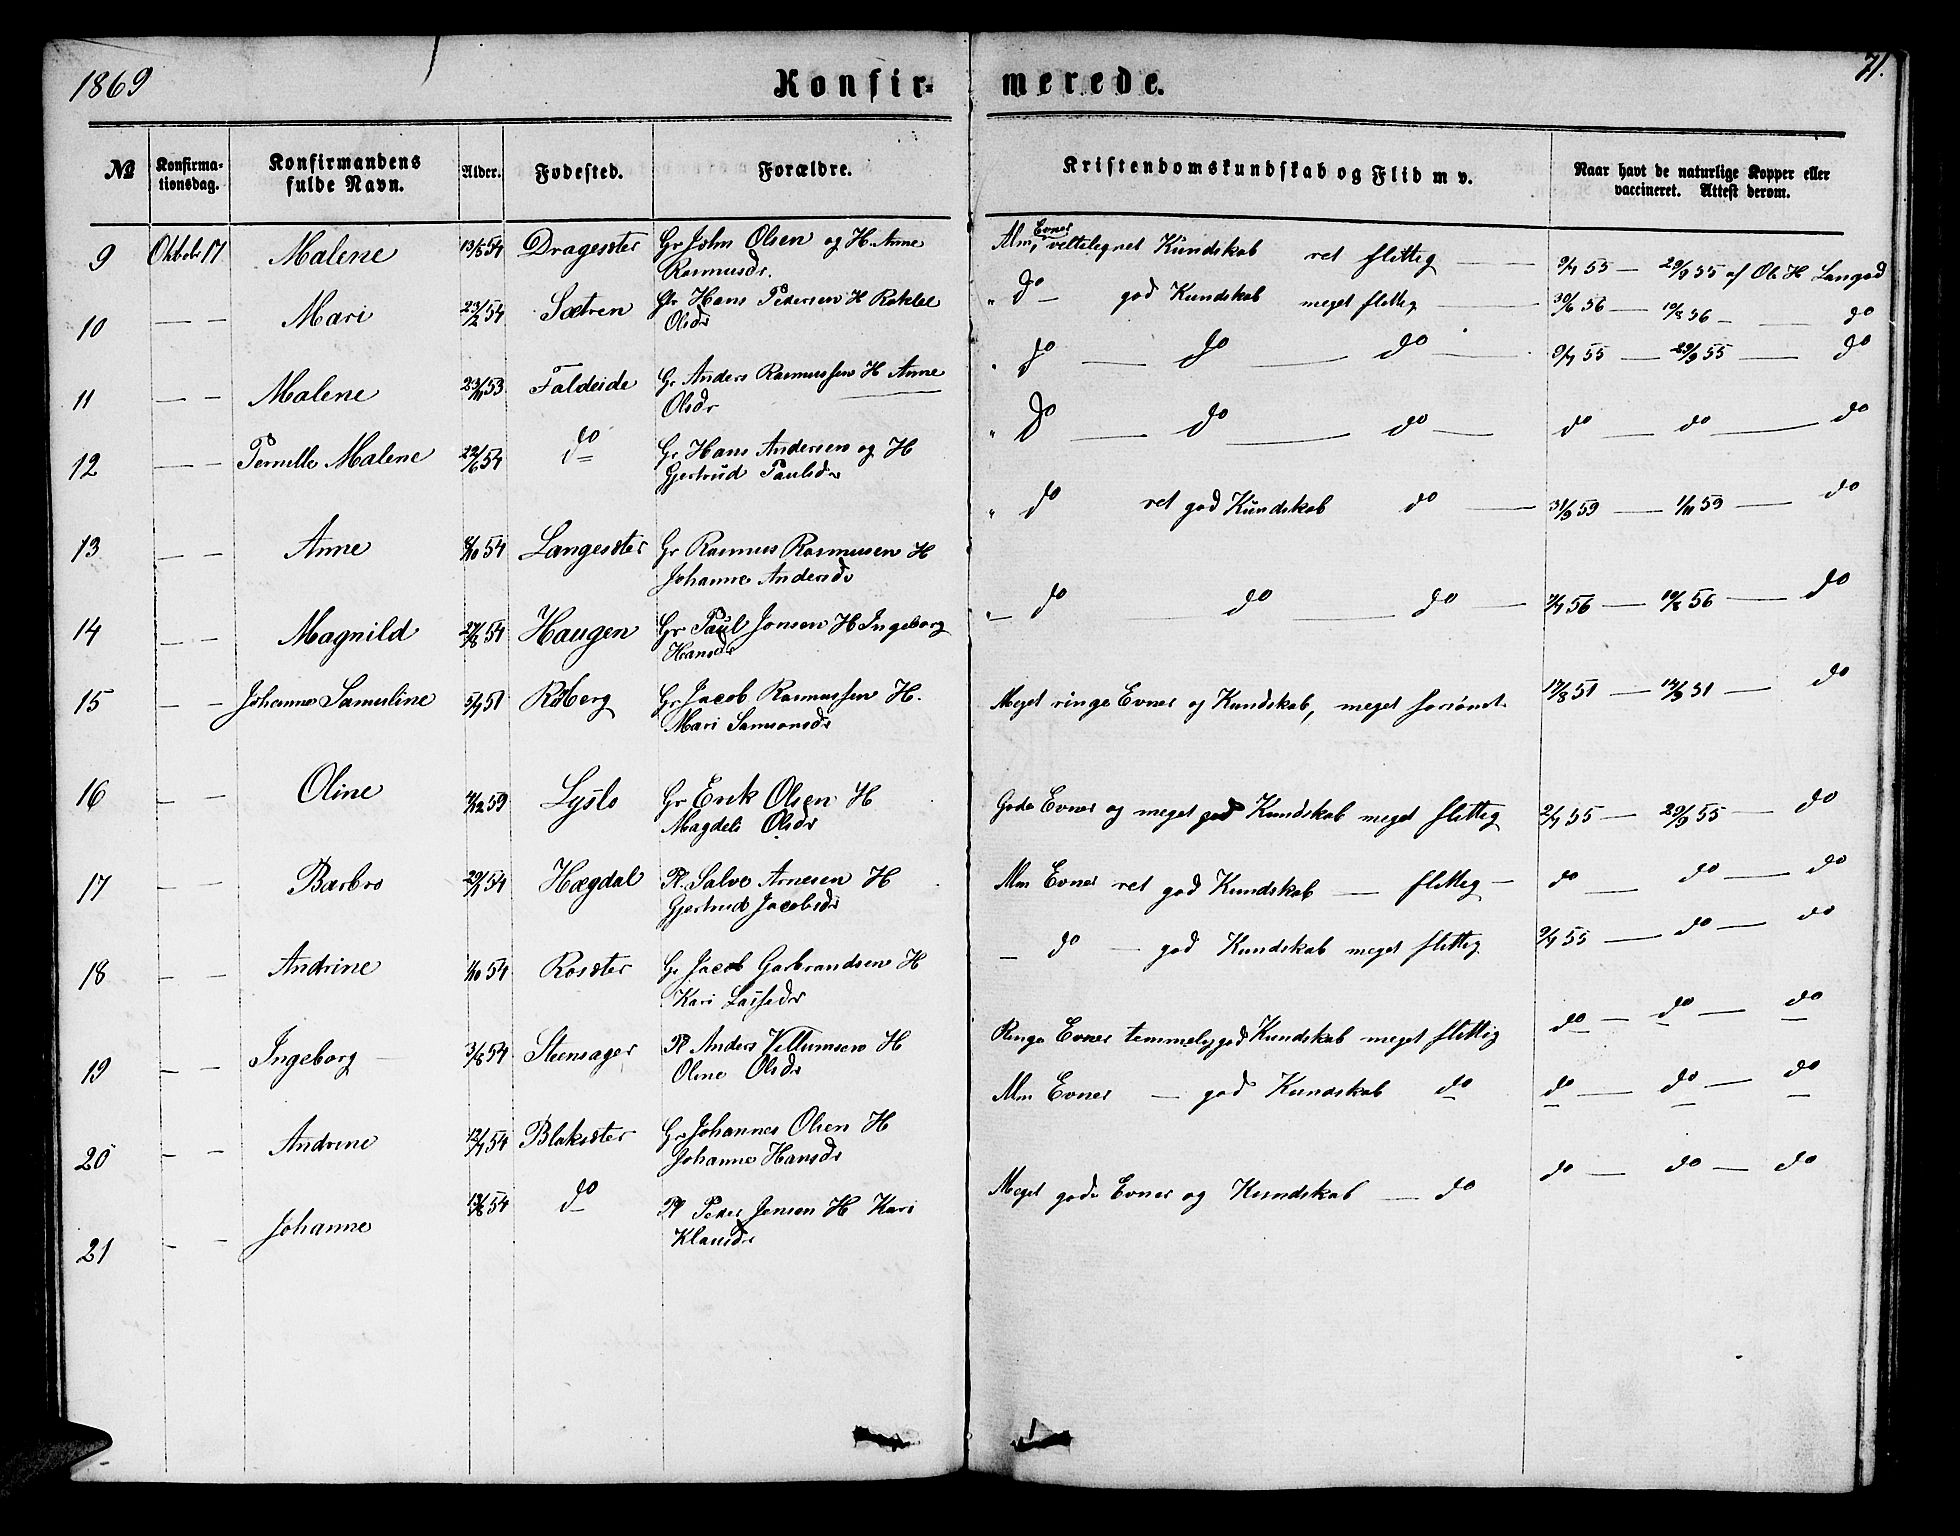 1869
Konfir- merede.
71.
No Konfirma-tionsdag. Konfirmandens fulde Navn. Alder. Fødested. Forældre. Kristendomskundskab og Flid m v. Naar havt de naturlige Kopper eller vaccineret. Attest derom.
9 Oktobr 17 Malene 13/5 54 Dragesæter Gr John Olsen og H. Anne Alm. Evner veltilegnet Kundskab ret flittig — 9/7 55 — 29/9 55 af Ole H Langød
Rasmusdr.
10 — — Mari 23/2 54 Sætren Gr Hans Pedersen H Rakkel " do — god Kundskab meget flittig — 30/6 56 — 10/8 56 — do
Olsdr
11 — — Malene 23/11 53 Faldeide Gr Anders Rasmussen H Anne " do — do — do — 9/7 55 — 29/9 55 — do
Olsdr
12 — — Pernelle Malene 22/6 54 do Gr Hans Andersen og H " do — do — do — do — do — do
Gjertrud Paulsdr
13 — — Anne 54 Langesæter Gr Rasmus Rasmusen H " do ret god Kundskab do — 31/9 59 — 1/11 59 — do
Johanne Andersdr
14 — — Magnild 27/8 54 Haugen Gr Paul Jonsen H Ingeborg " do do — do — 7/7 56 — 10/8 56 — do
Hansdr
15 — — Johanne Samuline 5/7 51 Röberg Gr Jacob Rasmussen H. Meget ringe Evner og Kundskab, meget forsømt 17/8 51 — 14/9 51 — do
Mari Samsonsdr
16 — — Oline Lyslo Gr Erik Olsen H Gode Evner og meget god Kundskab meget flittig 2/7 55 — 29/9 55 — do
Magdeli Olsdr
17 — — Barbro 54 Hægdal Pl. Salve Arnesen H Alm Evner ret god Kundskab — flittig — do — do — do
Gjertrud Jacobsdr
18 — — Andrine 1/10 54 Rosæter Gr Jacob Garbrandsen H — do — god Kundskab meget flittig 9/7 55 — do — do
Kari Lassedr
19 — — Ingeborg — 3/8 54 Steensager Pl Anders Villumsen H Ringe Evner temmelig god Kundskab meget flittig do — do — do
Oline Olsdr
20 — — Andrine 12/7 54 Blaksæter Gr Johannes Olsen H Alm Evner — god Kundskab do do — do — do
Johanne Hansdr
21 — — Johanne 54 do Pl Peder Jensen H Kari Meget gode Evner og Kundskab — do do — do — do
Klausdr